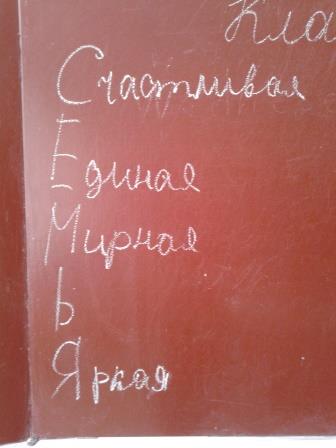 Кла
Счастливая
Единая
Мирная
Ь
Яркая